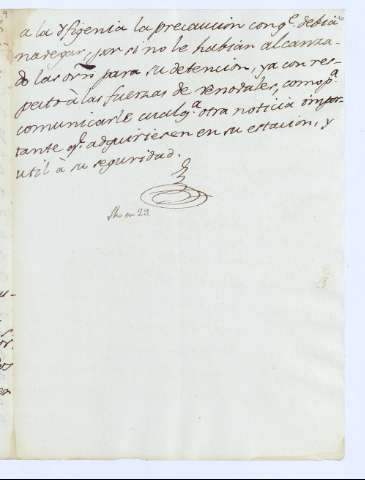 a la Yfigenia la precaucion con q.e debia
navegar, por si no le habian alcanza-
do las orn.s para su detencion, ya con res-
pecto à las fuerzas de renovales, como p.a
comunicarle cualq.a otra noticia impor-
tante q.e adquiriesen en su estacion, y
util à su seguridad.